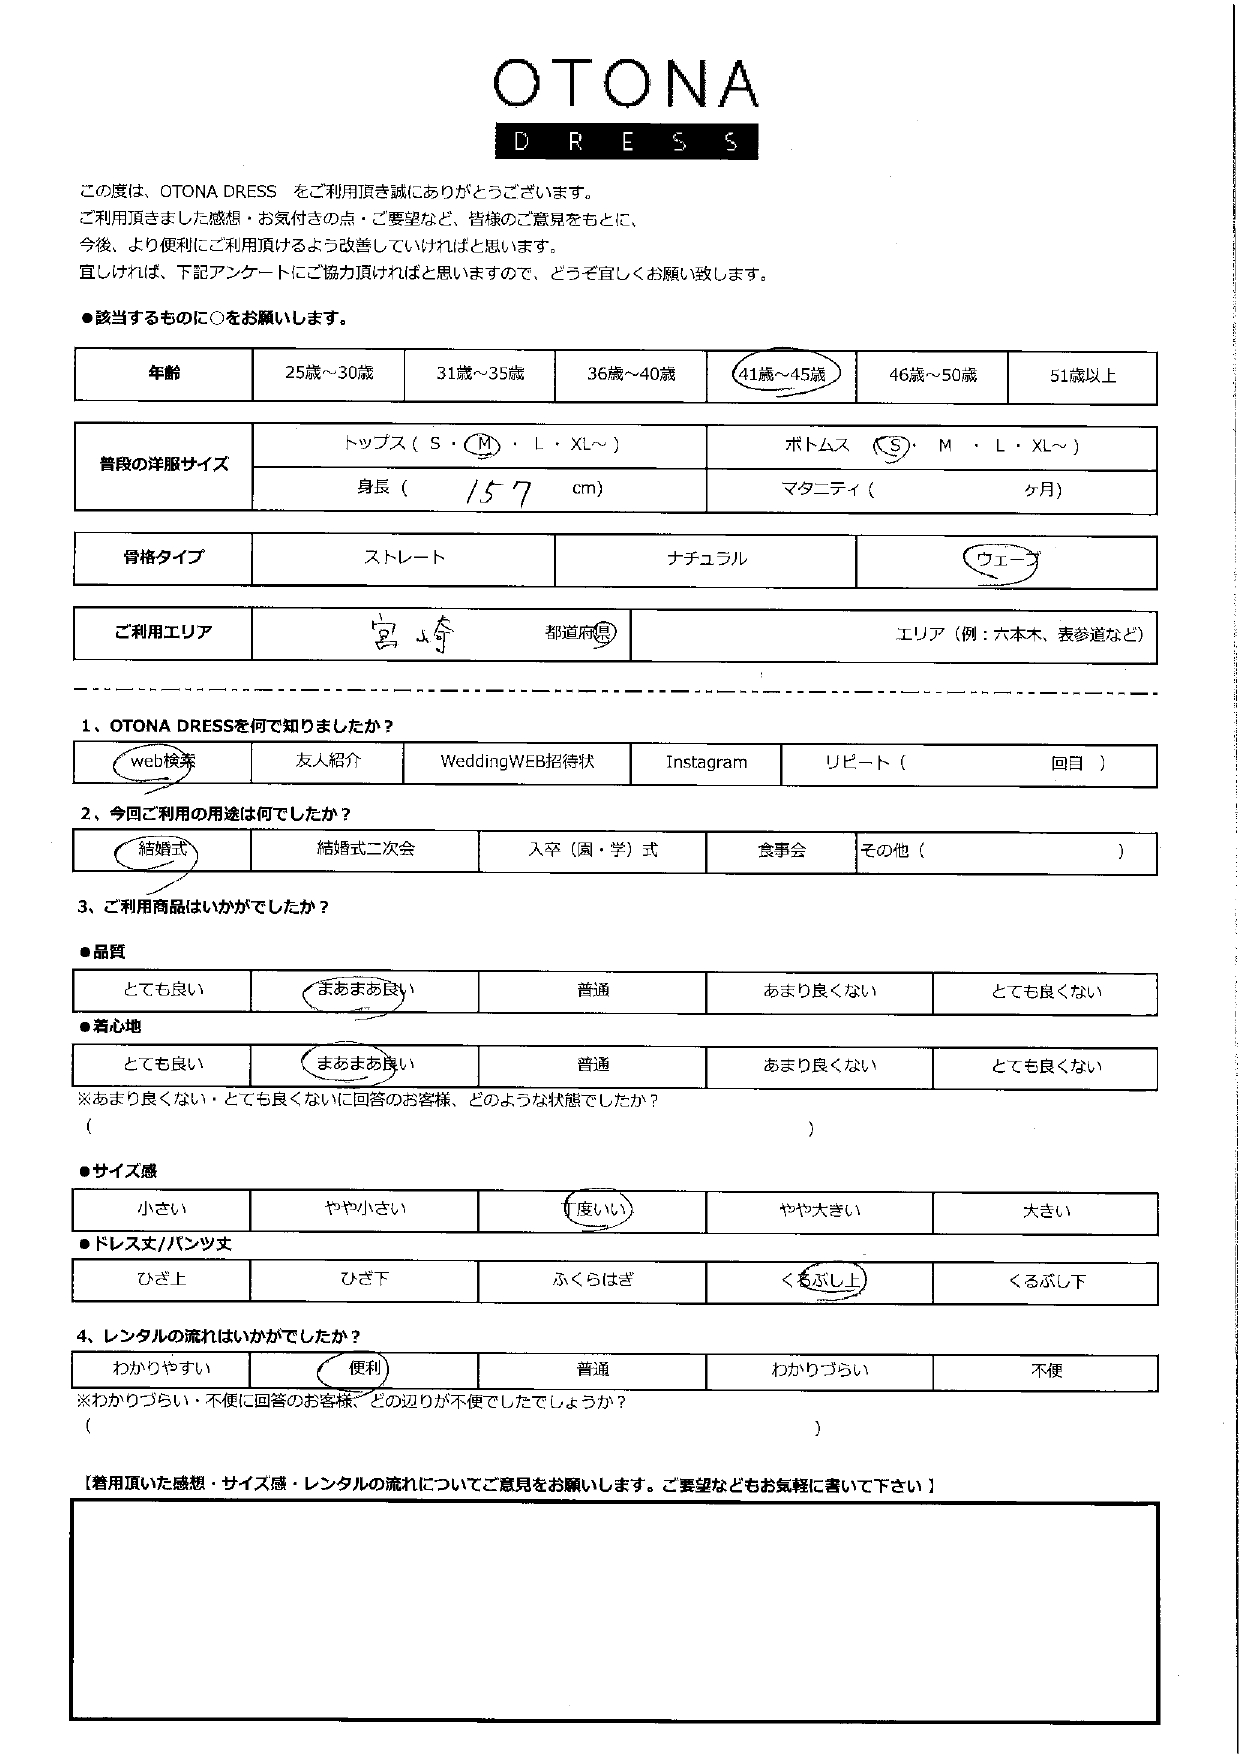 OTONA
DRESS
この度は、OTONA DRESS をご利用頂き誠にありがとうございます。
ご利用頂きました感想・お気付きの点・ご要望など、皆様のご意見をもとに、
今後、より便利にご利用頂けるよう改善していければと思います。
宜しければ、下記アンケートにご協力頂ければと思いますので、どうぞ宜しくお願い致します。
●該当するものに○をお願いします。
年齢 25歳～30歳 31歳～35歳 36歳～40歳 41歳～45歳 46歳～50歳 51歳以上
普段の洋服サイズ トップス ( S ・ M ・ L ・ XL～ ) ボトムス ( S ・ M ・ L ・ XL～ )
身長 ( 157 cm) マタニティ ( ヶ月)
骨格タイプ ストレート ナチュラル ウェーブ
ご利用エリア 宮崎 都道府県 エリア（例：六本木、表参道など）
1、OTONA DRESSを何で知りましたか？
web検索 友人紹介 WeddingWEB招待状 Instagram リピート ( 回目 )
2、今回ご利用の用途は何でしたか？
結婚式 結婚式二次会 入卒（園・学）式 食事会 その他 ( )
3、ご利用商品はいかがでしたか？
●品質
とても良い まあまあ良い 普通 あまり良くない とても良くない
●着心地
とても良い まあまあ良い 普通 あまり良くない とても良くない
※あまり良くない・とても良くないに回答のお客様、どのような状態でしたか？
( )
●サイズ感
小さい やや小さい 丁度いい やや大きい 大きい
●ドレス丈/パンツ丈
ひざ上 ひざ下 ふくらはぎ くるぶし上 くるぶし下
4、レンタルの流れはいかがでしたか？
わかりやすい 便利 普通 わかりづらい 不便
※わかりづらい・不便に回答のお客様、どの辺りが不便でしたでしょうか？
( )
【着用頂いた感想・サイズ感・レンタルの流れについてご意見をお願いします。ご要望などもお気軽に書いて下さい】